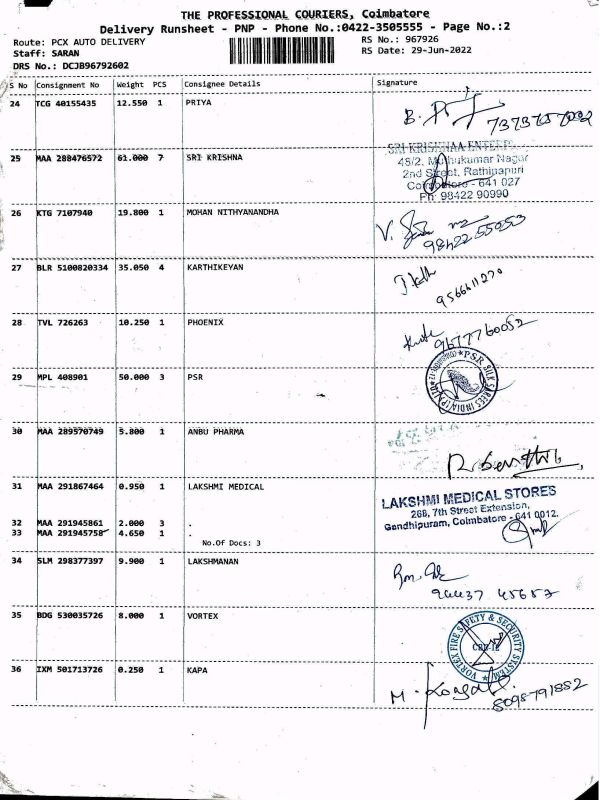 THE PROFESSIONAL COURIERS, Coimbatore
Delivery Runsheet - PNP - Phone No.:0422-3505555 - Page No.:2
Route: PCX AUTO DELIVERY
RS No.: 967926
Staff: SARAN
RS Date: 29-Jun-2022
DRS No.: DCJB96792602
S No Consignment No Weight PCS Consignee Details Signature
24 TCG 40155435 12.550 1 PRIYA
25 MAA 288476572 61.000 7 SRI KRISHNA
SRI KRISHNAA ENTERP
48/2, Muthukumar Nagar
2nd Street, Rathinapuri
Coimbatore - 641 027
Ph: 98422 90990
26 KTG 7107940 19.800 1 MOHAN NITHYANANDHA
98422 55053
27 BLR 5100820334 35.050 4 KARTHIKEYAN
9566611270
28 TVL 726263 10.250 1 PHOENIX
9677760052
29 MPL 408901 50.000 3 PSR
PSR SILK SAREES INDIA (P) LTD
30 MAA 289570749 5.800 1 ANBU PHARMA
31 MAA 291867464 0.950 1 LAKSHMI MEDICAL
LAKSHMI MEDICAL STORES
268, 7th Street Extension,
Gandhipuram, Coimbatore - 641 0012.
32 MAA 291945861 2.000 3 .
33 MAA 291945758 4.650 1 .
No.Of Docs: 3
34 SLM 298377397 9.900 1 LAKSHMANAN
94437 45652
35 BDG 530035726 8.000 1 VORTEX
VORTEX FIRE SAFETY & SECURITY SYSTEM
CBE-12
36 IXM 501713726 0.250 1 KAPA
8098791852